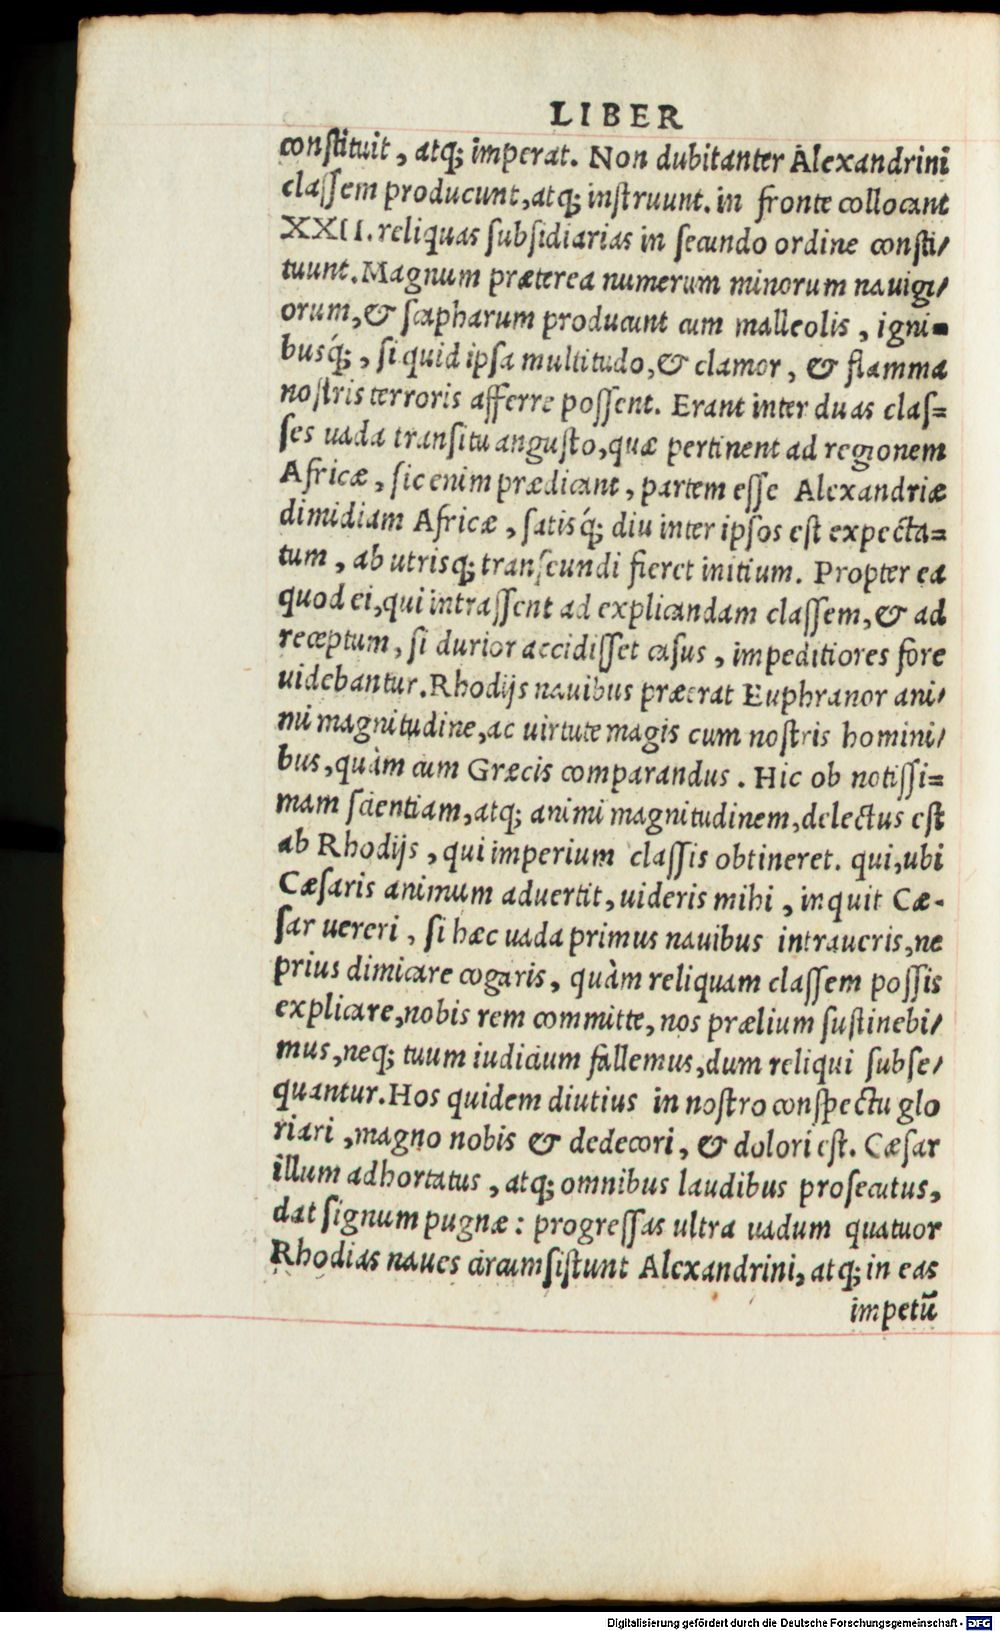 LIBER
constituit, atq; imperat. Non dubitanter Alexandrini
classem producunt, atq; instruunt. in fronte collocant
XXII. reliquas subsidiarias in secundo ordine consti/
tuunt. Magnum præterea numerum minorum nauigi/
orum, & scapharum producunt cum malleolis, igni-
busq́;, si quid ipsa multitudo, & clamor, & flamma
nostris terroris afferre possent. Erant inter duas clas=
ses uada transitu angusto, quæ pertinent ad regionem
Africæ, sic enim prædicant, partem esse Alexandriæ
dimidiam Africæ, satisq́; diu inter ipsos est expecta=
tum, ab utrisq; transeundi fieret initium. Propter ea
quod ei, qui intrassent ad explicandam classem, & ad
receptum, si durior accidisset casus, impeditiores fore
uidebantur. Rhodijs nauibus præerat Euphranor ani/
mi magnitudine, ac uirtute magis cum nostris homini/
bus, quàm cum Græcis comparandus. Hic ob notissi=
mam scientiam, atq; animi magnitudinem, delectus est
ab Rhodijs, qui imperium classis obtineret. qui, ubi
Cæsaris animum aduertit, uideris mihi, inquit Cæ-
sar uereri, si hæc uada primus nauibus intraueris, ne
prius dimicare cogaris, quàm reliquam classem possis
explicare, nobis rem committe, nos prælium sustinebi/
mus, neq; tuum iudicium fallemus, dum reliqui subse/
quantur. Hos quidem diutius in nostro conspectu glo
riari, magno nobis & dedecori, & dolori est. Cæsar
illum adhortatus, atq; omnibus laudibus prosecutus,
dat signum pugnæ: progressas ultra uadum quatuor
Rhodias naues circumsistunt Alexandrini, atq; in eas
impetū
Digitalisierung gefördert durch die Deutsche Forschungsgemeinschaft - DFG